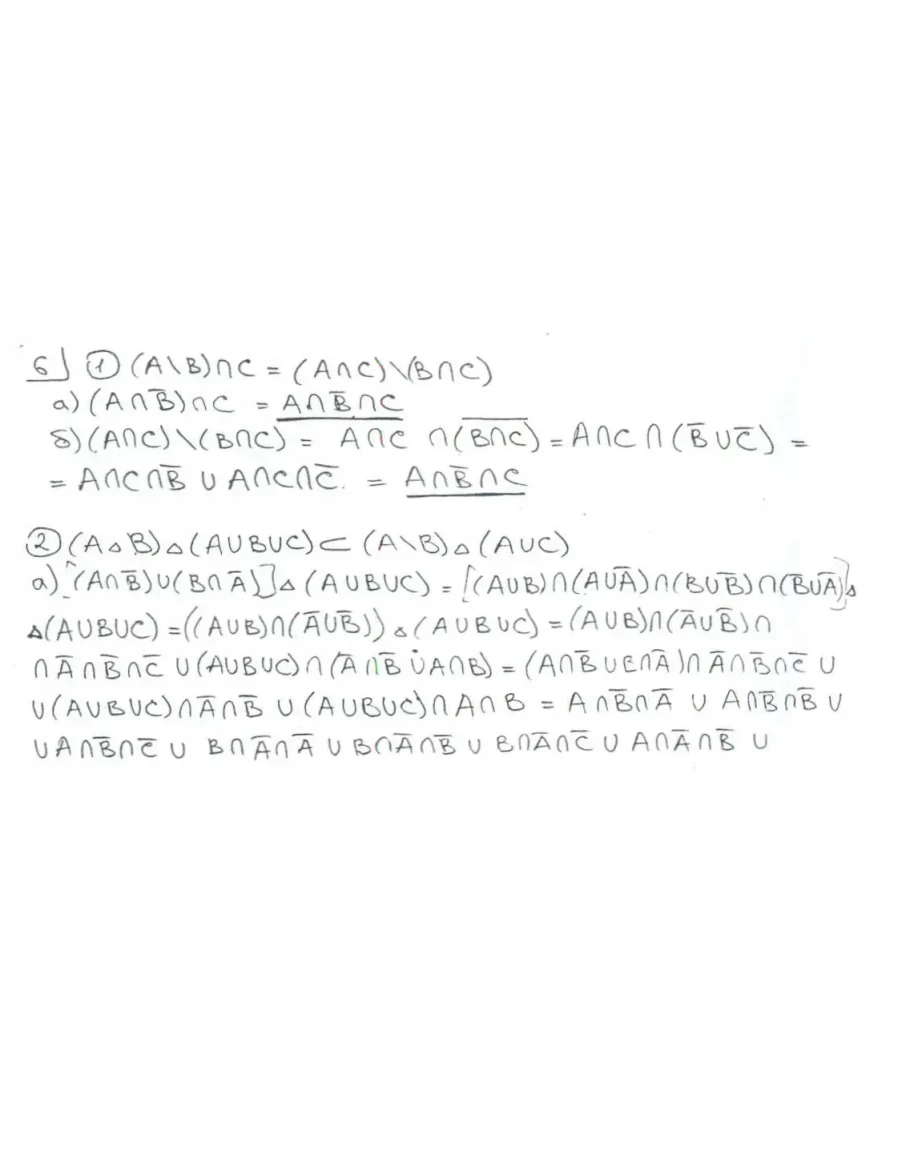 б] ① (A\B)∩C = (A∩C)\(B∩C)
а) (A∩B̅)∩C = A∩B̅∩C
б) (A∩C)\(B∩C) = A∩C ∩(B∩C)̅ = A∩C∩(B̅∪C̅) =
= A∩C∩B̅ ∪ A∩C∩C̅. = A∩B̅∩C
② (A△B)△(A∪B∪C)⊂ (A\B)△(A∪C)
а) [(A∩B̅)∪(B∩A̅)]△(A∪B∪C) = [(A∪B)∩(A∪A̅)∩(B∪B̅)∩(B̅∪A̅)]△
△(A∪B∪C) =((A∪B)∩(A̅∪B̅))△(A∪B∪C) = (A∪B)∩(A̅∪B̅)∩
∩A̅∩B̅∩C̅ ∪(A∪B∪C)∩(A̅∩B̅∪A∩B) = (A∩B̅∪B∩A̅)∩A̅∩B̅∩C̅ ∪
∪(A∪B∪C)∩A̅∩B̅ ∪(A∪B∪C)∩A∩B = A∩B̅∩A̅ ∪ A∩B̅∩B̅ ∪
∪A∩B̅∩C̅ ∪ B∩A̅∩A̅ ∪ B∩A̅∩B̅ ∪ B∩A̅∩C̅ ∪ A∩A̅∩B̅ ∪